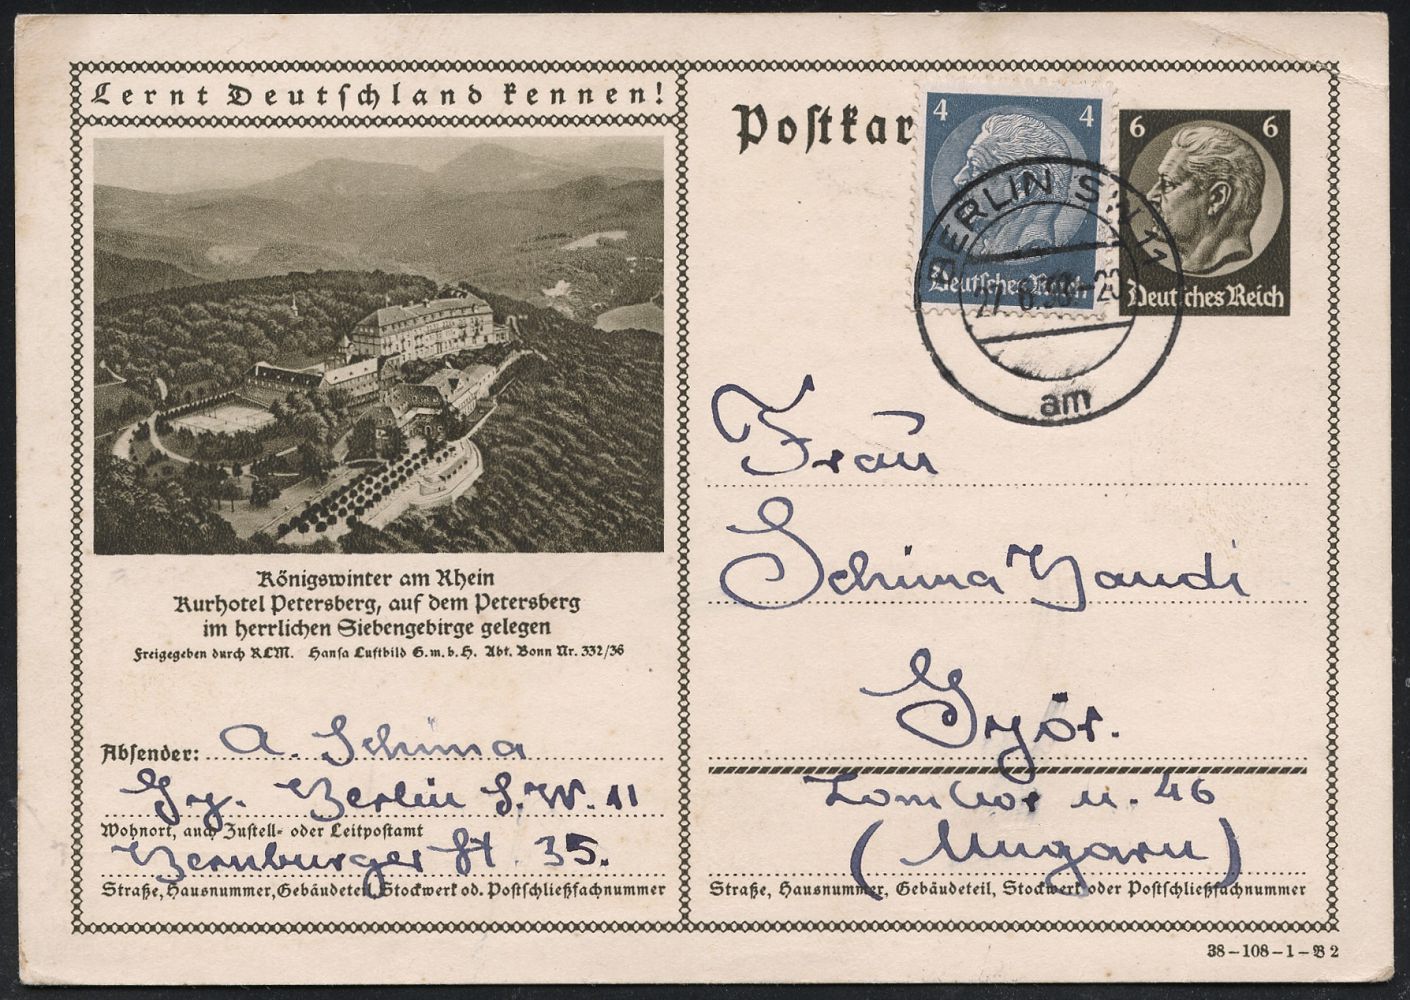 Lernt Deutschland kennen!
Königswinter am Rhein
Kurhotel Petersberg, auf dem Petersberg
im herrlichen Siebengebirge gelegen
Freigegeben durch RLM. Hansa Luftbild G.m.b.H. Abt. Bonn Nr. 332/36
Absender: A. Schima
Gy. Berlin S.W. 11
Wohnort, auch Zustell- oder Leitpostamt
Bernburger St. 35.
Straße, Hausnummer, Gebäudeteil, Stockwerk od. Postschließfachnummer
Postkar
4 4
Deutsches Reich
6 6
Deutsches Reich
BERLIN SW 11
27.6.38-20
am
Frau
Schima Bandi
Györ.
Zombor u. 46
(Ungarn)
Straße, Hausnummer, Gebäudeteil, Stockwerk oder Postschließfachnummer
38-108-1-B 2